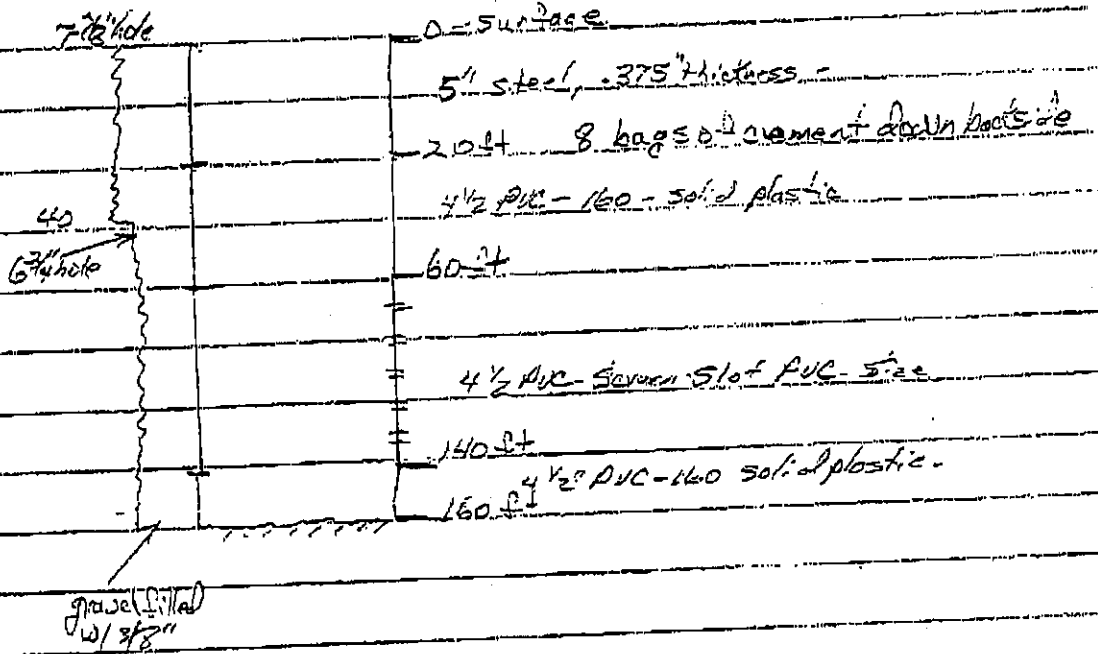 7 7/8" hole
0 = Surface
5" steel, .375" thickness -
20 ft 8 bags of cement down backside
4 1/2 PVC - 160 - solid plastic
40
6 3/4" hole
60 ft
4 1/2 PVC - Screen Slot PVC - Size
140 ft
4 1/2" PVC - 160 solid plastic.
160 ft
gravel filled
w/ 3/8"